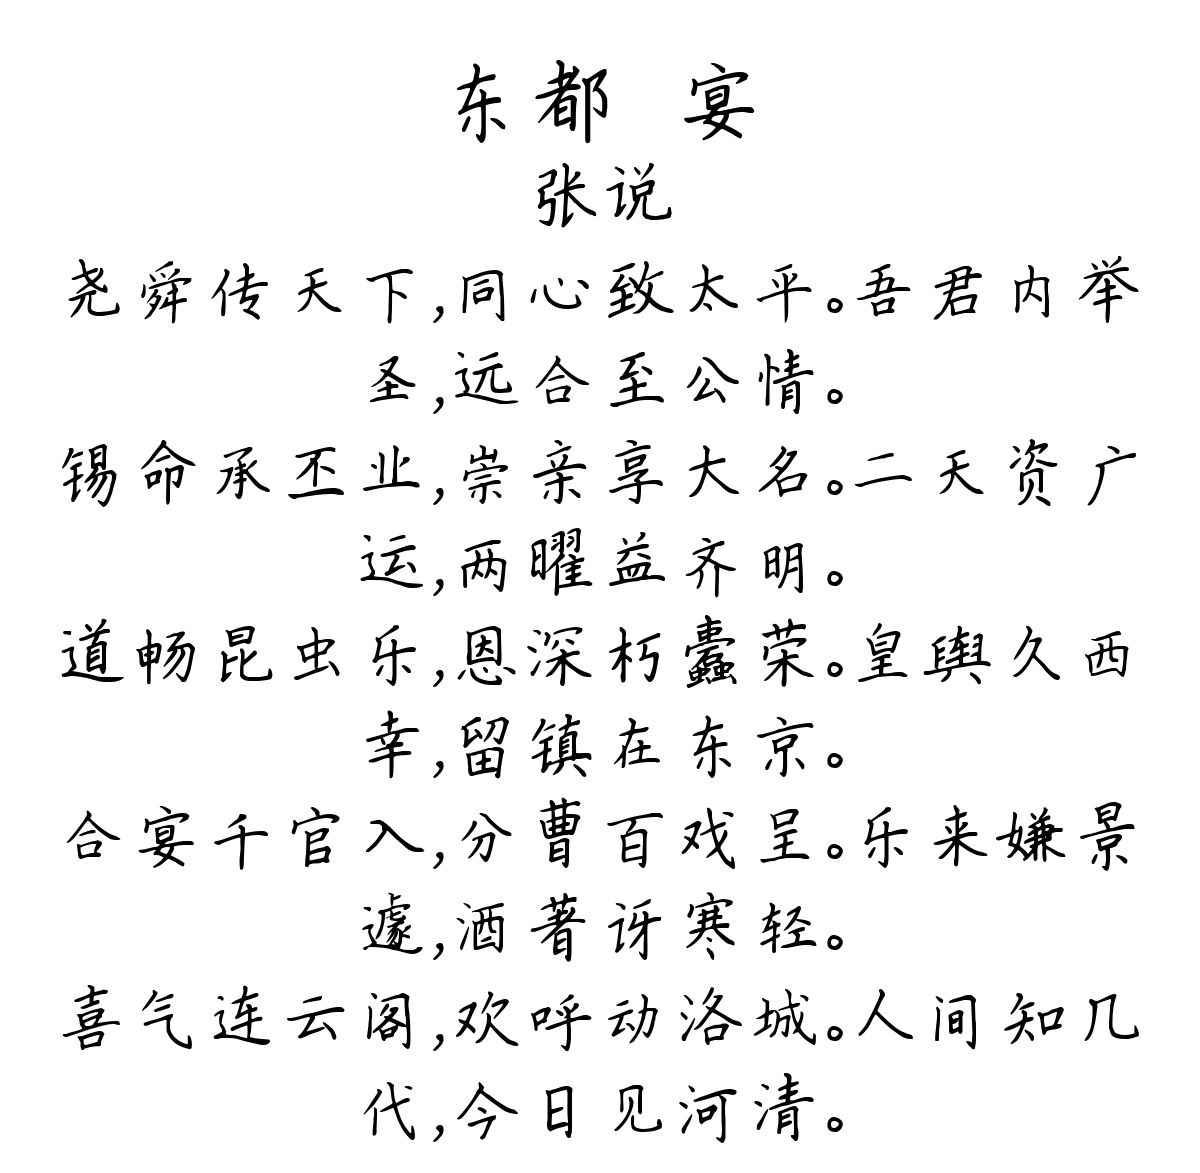 东都 宴
张说
尧舜传天下,同心致太平。吾君内举
圣,远合至公情。
锡命承丕业,崇亲享大名。二天资广
运,两曜益齐明。
道畅昆虫乐,恩深朽蠹荣。皇舆久西
幸,留镇在东京。
合宴千官入,分曹百戏呈。乐来嫌景
遽,酒著讶寒轻。
喜气连云阁,欢呼动洛城。人间知几
代,今日见河清。